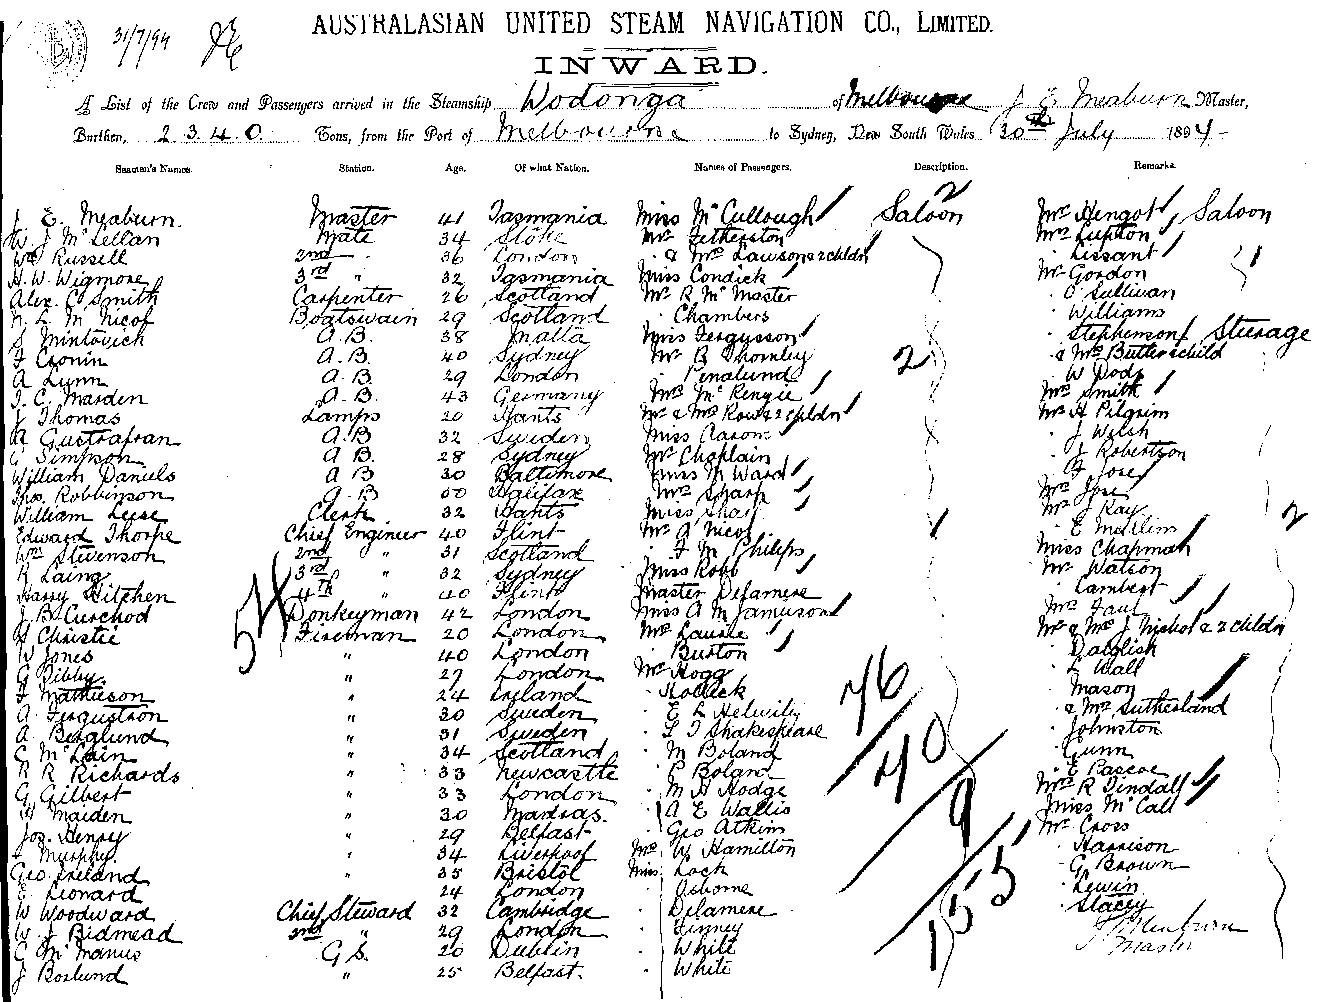 31/7/94
AUSTRALASIAN UNITED STEAM NAVIGATION CO., LIMITED.
INWARD.
A List of the Crew and Passengers arrived in the Steamship Wodonga of Melbourne J. E. Meaburn Master,
Burthen, 2340 Tons, from the Port of Melbourne to Sydney, New South Wales 30th July 1894
Seamen's Names. Station. Age. Of what Nation. Names of Passengers. Description. Remarks.
J E. Meaburn. Master 41 Tasmania Miss McCullough Saloon 2 Mr Hengot Saloon
W. J McLellan Mate 34 Stoke Mr Fetherston Mrs Lupton
Wm Russell 2nd " 36 London " & Mrs Lawson & 2 childn " Lissant 1
H. W. Wigmore 3rd " 32 Tasmania Miss Condick Mr Gordon
Alex. C. Smith Carpenter 26 Scotland Mr R McMaster " O'Sullivan
N. L. McNicol Boatswain 29 Scotland " Chambers " Williams
S Mintovich A.B. 38 Malta Miss Fergusson " Stephenson Steerage
F Cronin A.B. 40 Sydney Mr B Thornley 2 " & Mrs Butler & child
A Lynn A.B. 29 London " Penalund " W Dods
T. C. Marden A.B. 43 Germany Mrs McKenzie Mrs Smith
J Thomas Lamps 20 Hants Mr & Mrs Row & 2 childn Mr H Pilgrim
A Gustafran A.B 32 Sweden Miss Aarons " J Welsh
G Simpson A B. 28 Sydney Mr Chaplain " J Robertson
William Daniels A B 30 Baltimore Miss M Ward " F Jose
Thos. Robbinson A.B 50 Halifax Mrs Sharp Mrs Jose
William Leese Clerk 32 Hants Miss Shar Mr J Ray 2
Edward Thorpe Chief Engineer 40 Flint Mr A Nicol " E
Wm Stevenson 2nd " 31 Scotland " F M Philips Miss Chapman
R Laing 3rd " 32 Sydney Miss Robb Mr Watson
Harry Hitchen 4th " 40 Flint Master Delamere " Lambert
J. B. Curchod Donkeyman 42 London Miss A M Jamieson Mrs Faul
H Christie Fireman 20 London Mrs Laurie Mr & Mrs J Nichol & 2 childn
W Jones " 40 London " Buxton " Dalglish
G Bibby " 27 London Mr Hogg " L Wall
F Mathieson " 24 Ireland " Pollock " Mason
A Fergustron " 30 Sweden " E L " & Mrs Sutherland
A Berglund " 31 Sweden " L J Shakespeare " Johnston
G McLain " 34 Scotland " M Boland " Gunn
R R Richards " 33 Newcastle " P Boland " E Pascoe
G Gilbert " 33 London " M H Hodge Mrs R Tindall
W Maiden " 30 Madras. " A E Wallis Miss McCall
Jos. Henry " 29 Belfast " Geo Atkins Mr Cross
Murphy. " 34 Liverpool Mrs W Hamilton " Harrison
Geo. Ireland " 35 Bristol Miss Loch " G Brown
E Leonard " 24 London " Osborne " Lewin
W Woodward Chief Steward 32 Cambridge " Delamere " Stacey
W. J Bidmead 2nd " 29 London " Finney J E Meaburn
G McManus G S. 20 Dublin " White Master
J Boslund " 25 Belfast. " White
54
76
40
9
155